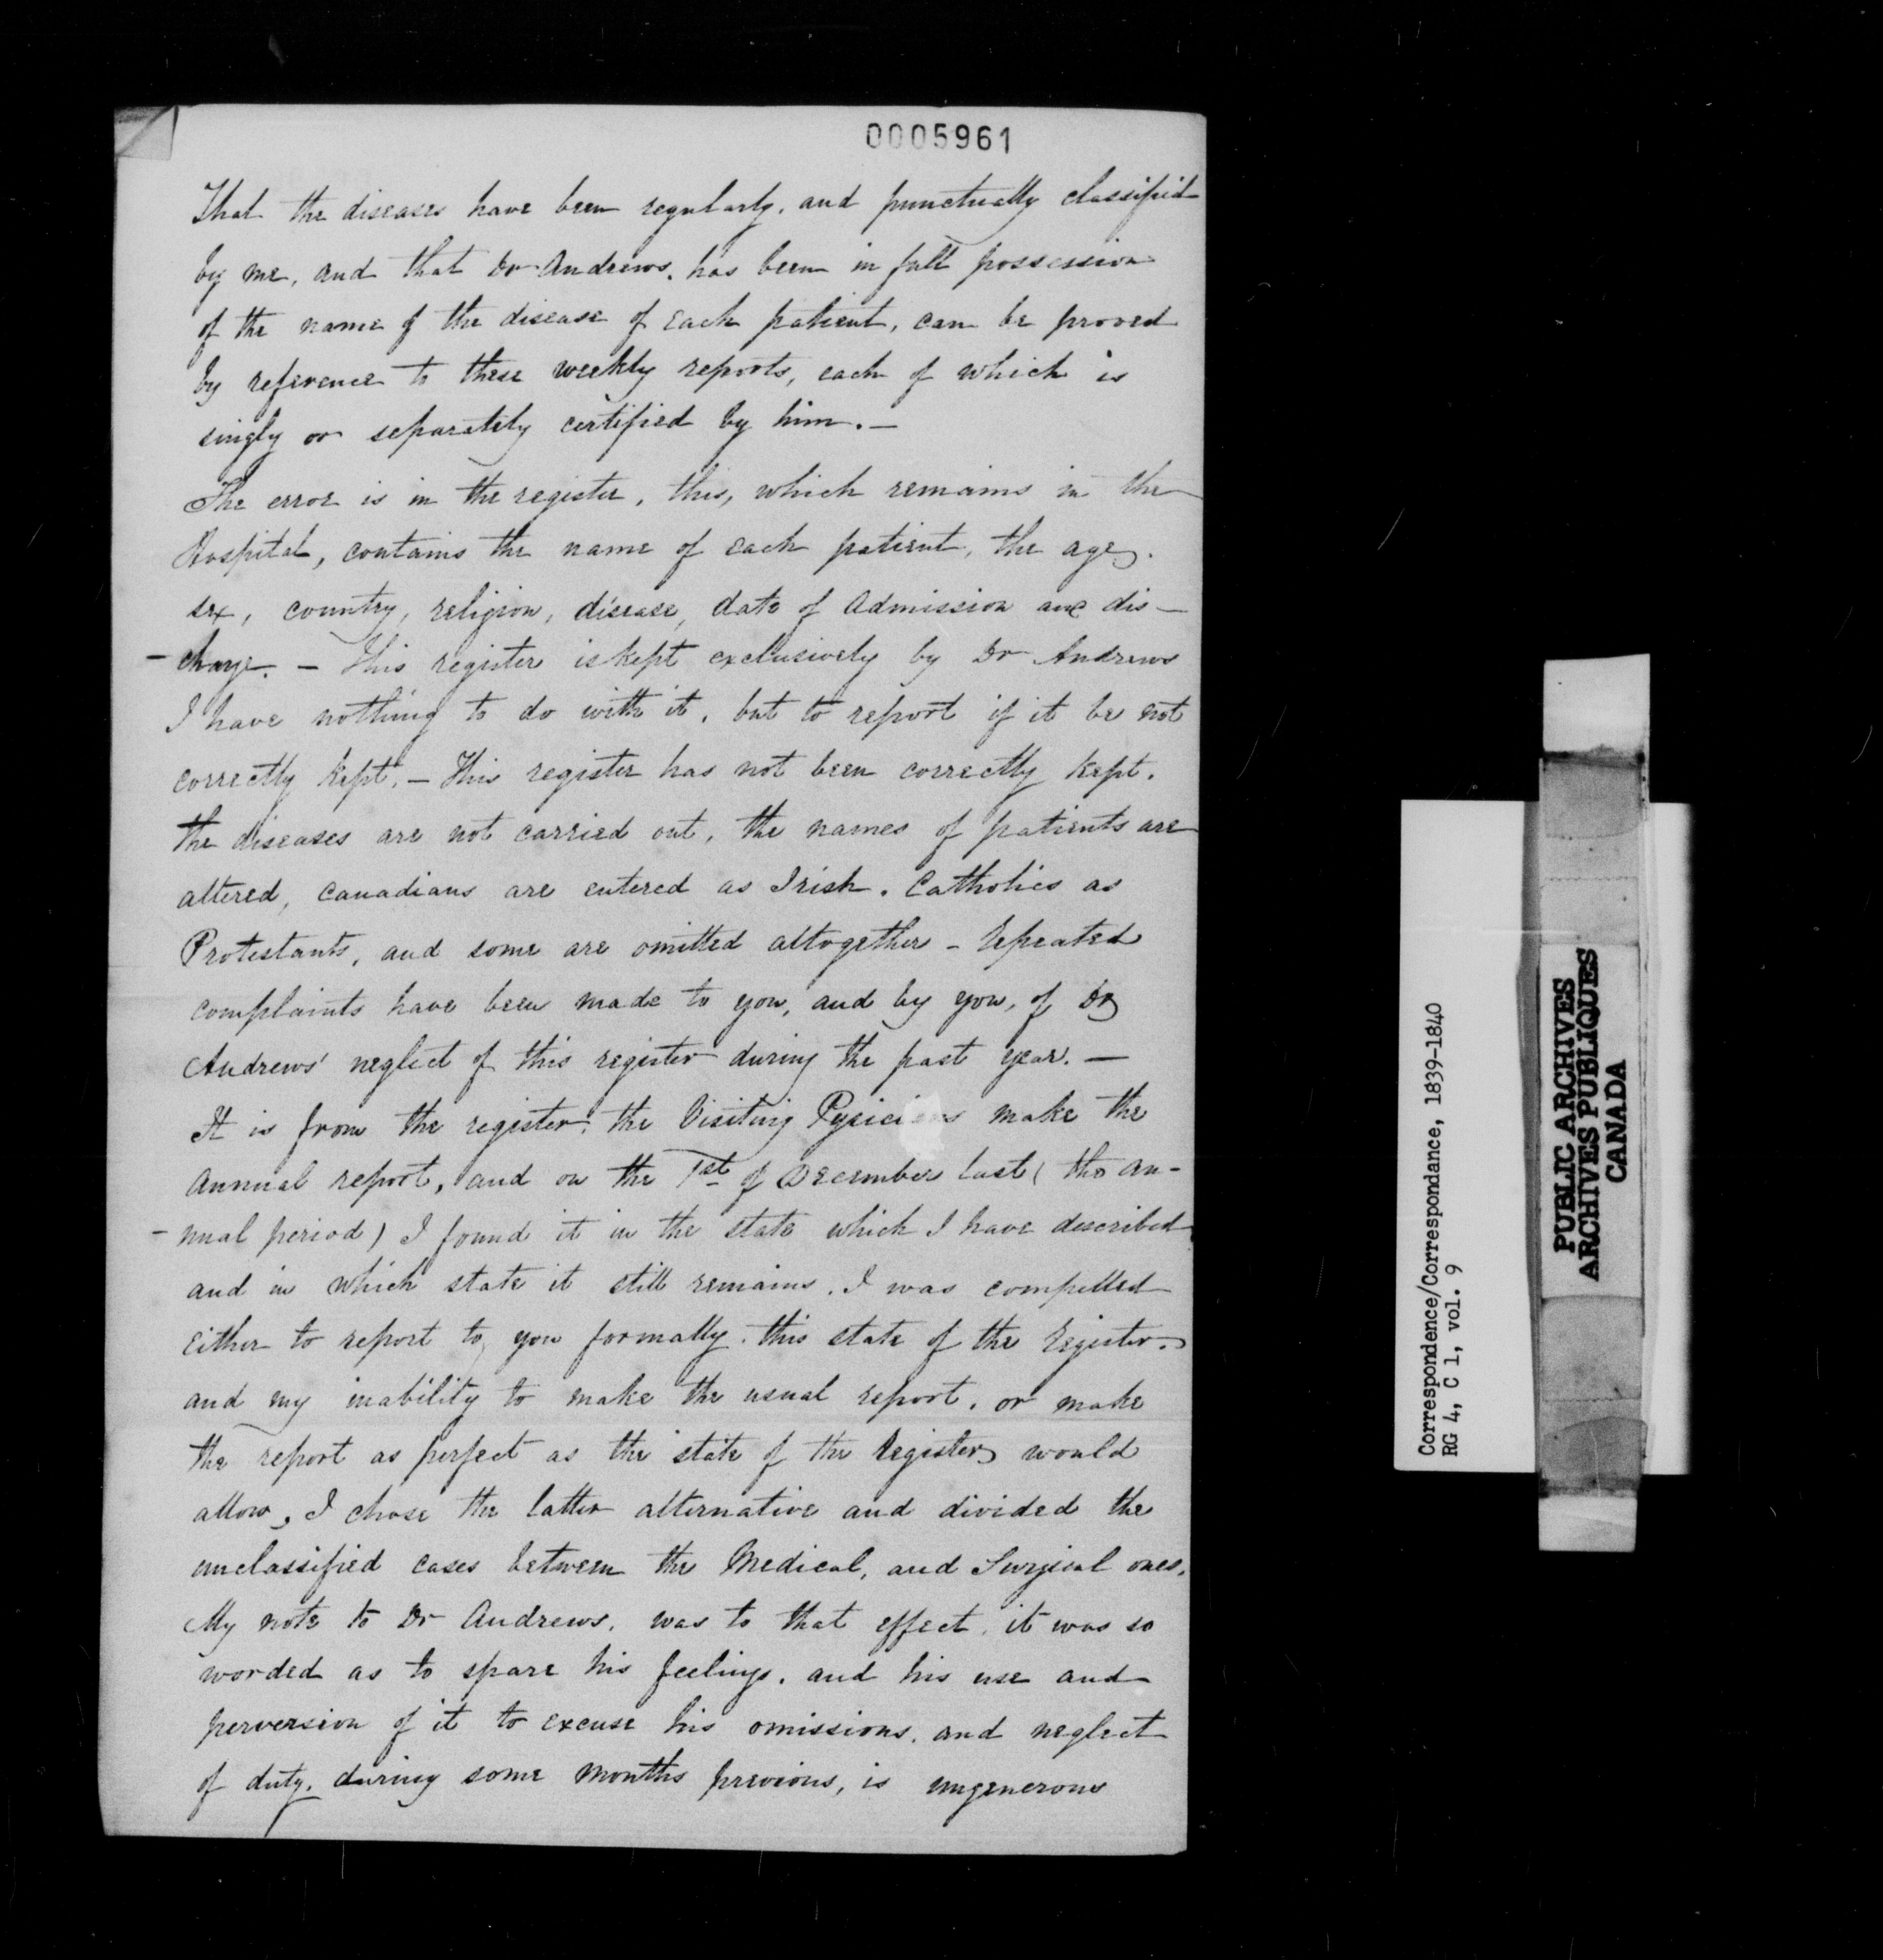 0005961
That the diseases have been regularly, and punctually classified
by me, and that Dr Andrews, has been in full possession
of the name of the disease of each patient, can be proved
by reference to these weekly reports, each of which is
singly or separately certified by him. —
The error is in the register, this, which remains in the
Hospital, contains the name of each patient, the age,
sex, country, religion, disease, date of admission and dis-
-charge. — This register is kept exclusively by Dr Andrews
I have nothing to do with it, but to report if it be not
correctly kept. — This register has not been correctly kept.
the diseases are not carried out, the names of patients are
altered, Canadians are entered as Irish, Catholics as
Protestants, and some are omitted altogether — repeated
complaints have been made to you, and by you, of Dr
Andrews' neglect of this register during the past year. —
It is from the register, the Visiting Pysicians make the
annual report, and on the 1st of December last (the an-
-nual period) I found it in the state which I have described
and in which state it still remains. I was compelled
either to report to you formally this state of the register,
and my inability to make the usual report, or make
the report as perfect as the state of the register would
allow, I chose the latter alternative and divided the
unclassified cases between the Medical, and Surgical ones.
My note to Dr Andrews, was to that effect, it was so
worded as to spare his feelings, and his use and
perversion of it to excuse his omissions, and neglect
of duty, during some months previous, is ungenerous
Correspondence/Correspondance, 1839-1840
RG 4, C 1, vol. 9
PUBLIC ARCHIVES
ARCHIVES PUBLIQUES
CANADA